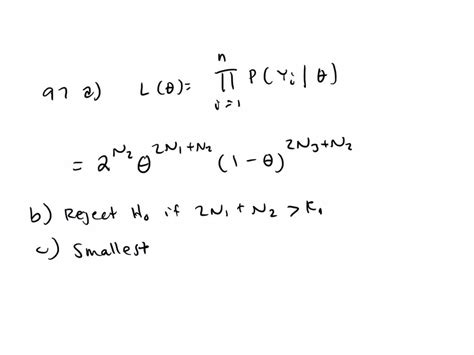 97 a) L(θ) = n ∏ i=1 P(Yi | θ)
= 2^N₂ θ^2N₁+N₂ (1-θ)^2N₃+N₂
b) Reject H₀ if 2N₁ + N₂ > K.
c) Smallest